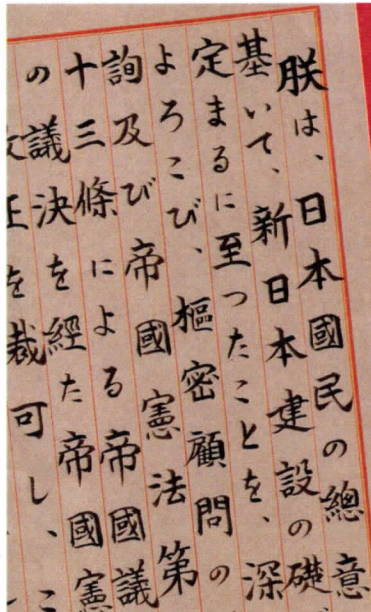 朕は、日本國民の總意
基いて、新日本建設の礎
定まるに至つたことを、深
よろこび、樞密顧問の
詢及び帝國憲法第
十三條による帝國議
の議決を経た帝國憲
改正を裁可し、こ